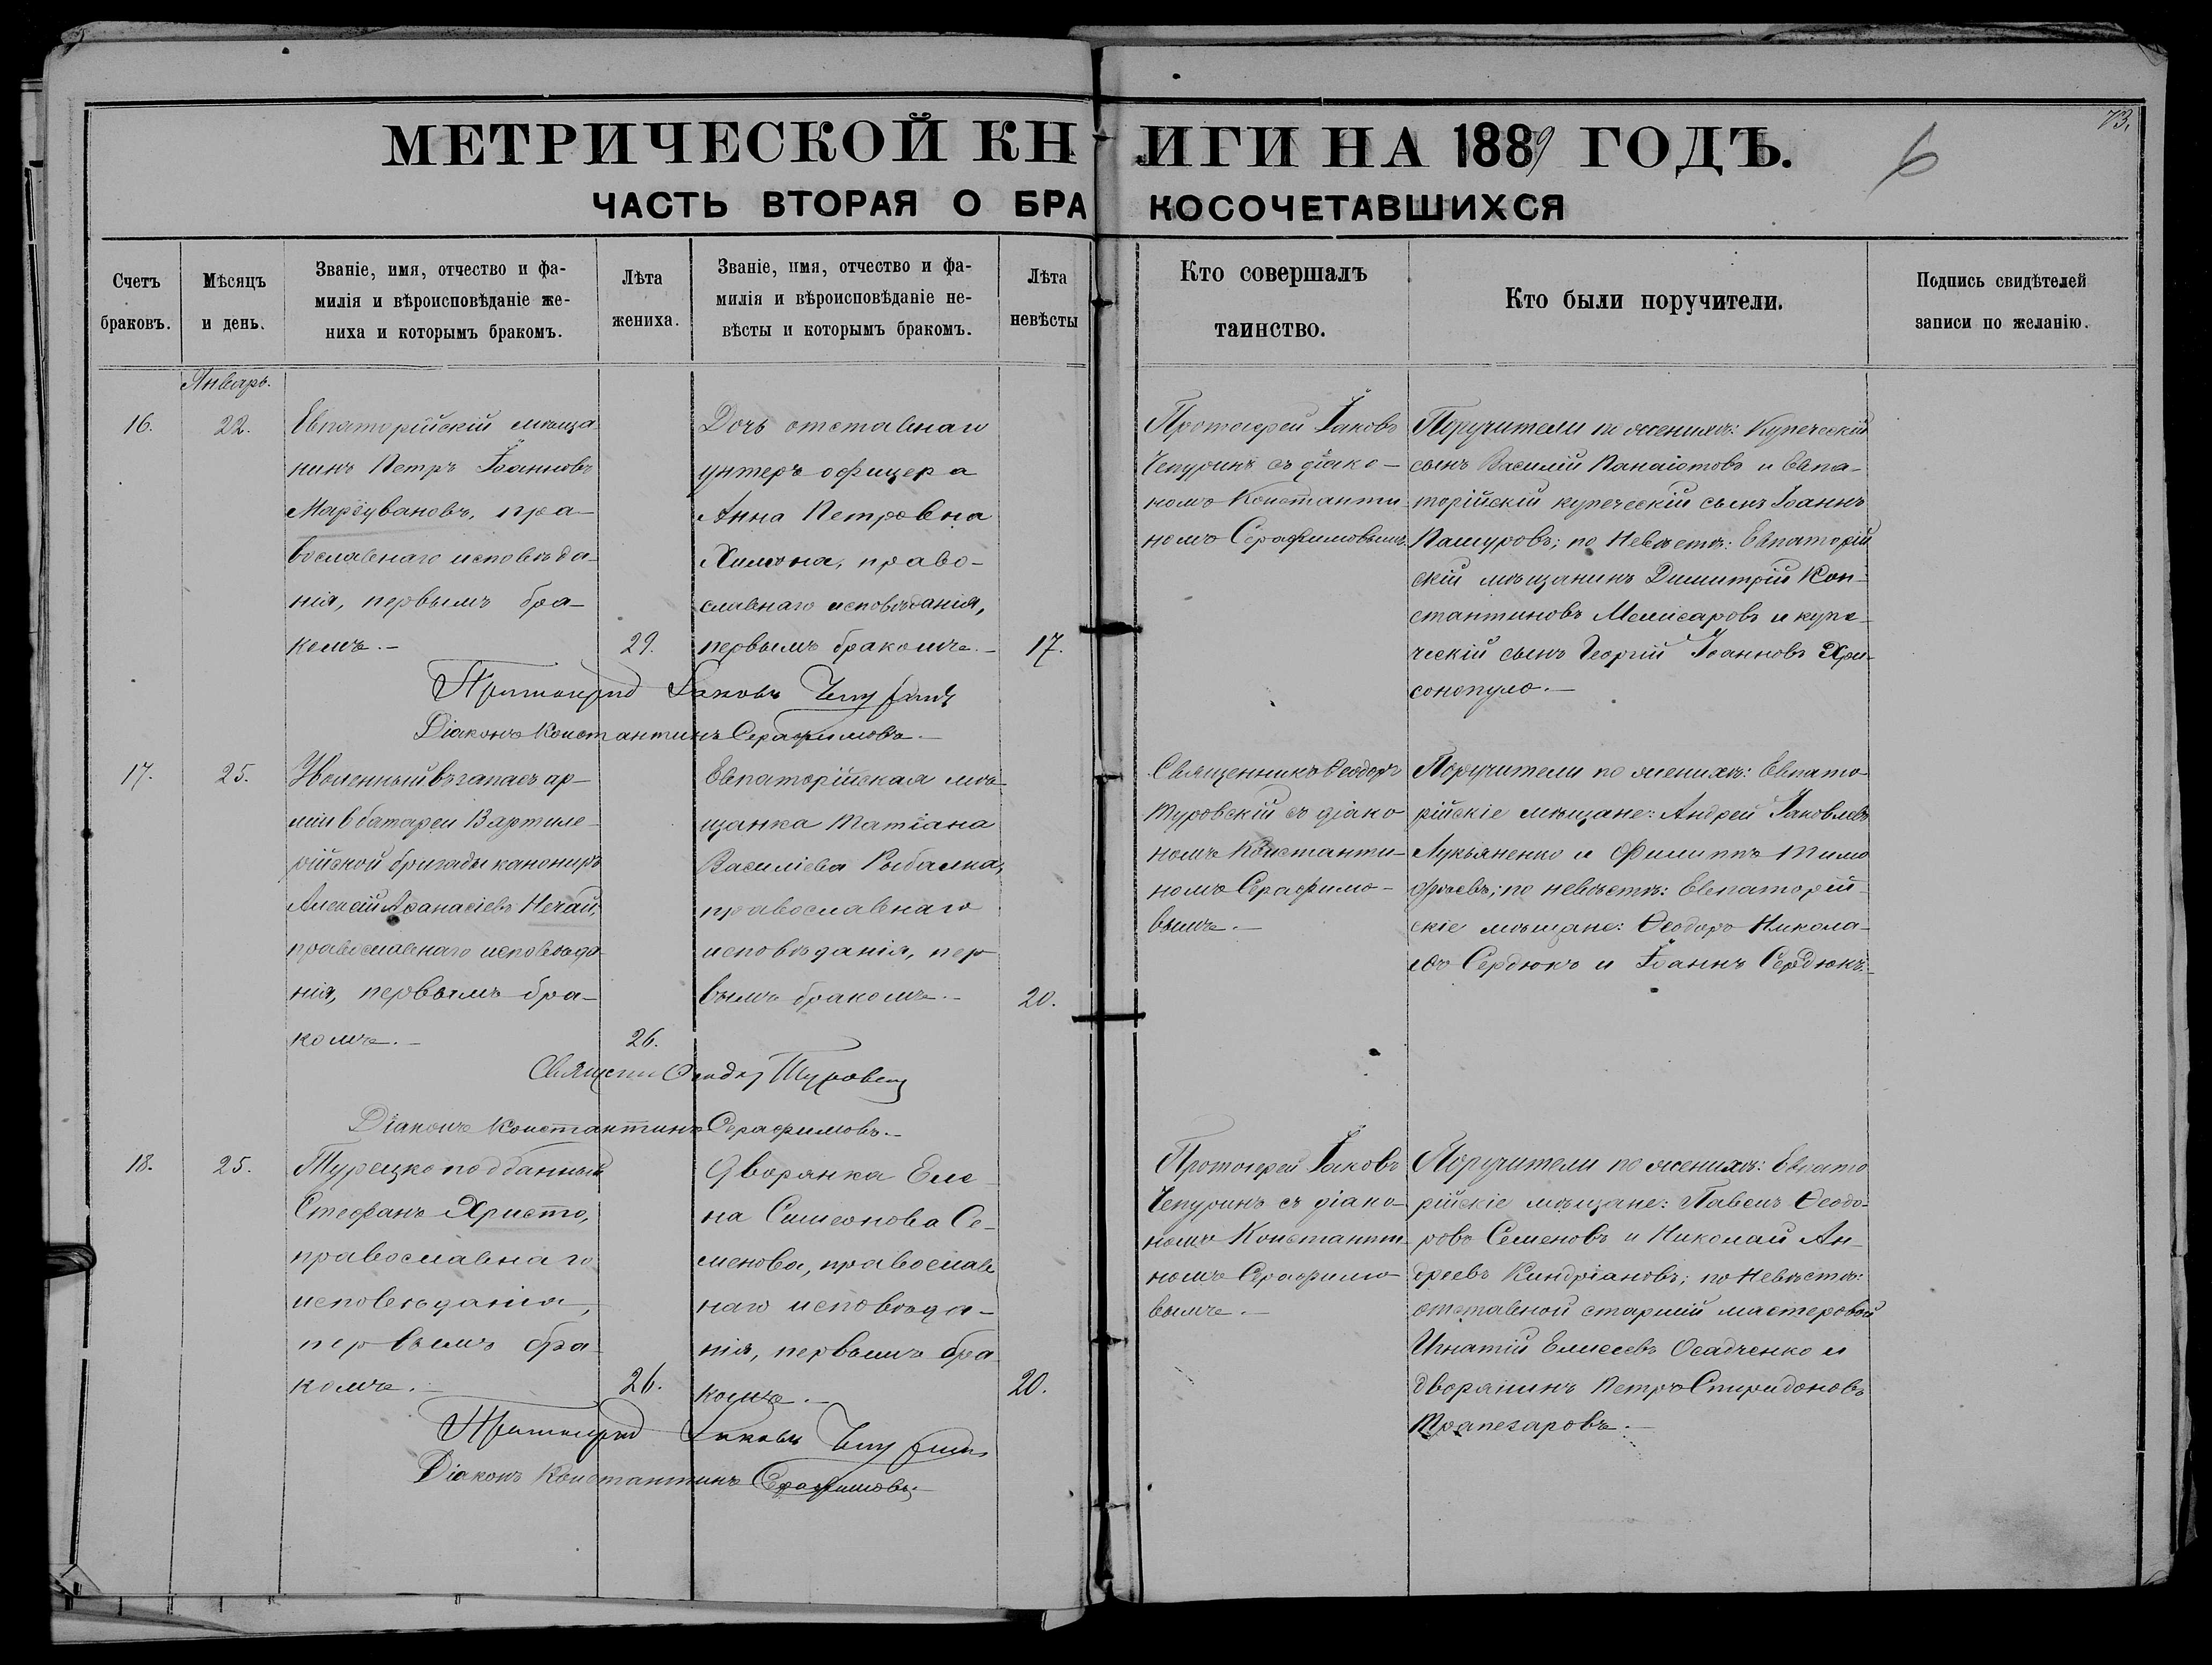 73.
МЕТРИЧЕСКОЙ КНИГИ НА 1889 ГОДЪ.
6
ЧАСТЬ ВТОРАЯ О БРАКОСОЧЕТАВШИХСЯ
Счетъ
браковъ.
Мѣсяцъ
и день.
Званіе, имя, отчество и фа-
милія и вѣроисповѣданіе же-
ниха и которымъ бракомъ.
Лѣта
жениха.
Званіе, имя, отчество и фа-
милія и вѣроисповѣданіе не-
вѣсты и которымъ бракомъ.
Лѣта
невѣсты
Кто совершалъ
таинство.
Кто были поручители.
Подпись свидѣтелей
записи по желанію.
Январь.
16.
22.
Евпаторійскій мѣща
нинъ Петръ Іоанновъ
пра-
вославнаго исповѣда-
нія, первымъ бра-
комъ.-
29.
Дочь отставнаго
унтеръ офицера
Анна Петровна
право-
славнаго исповѣданія,
первымъ бракомъ.-
17.
Протоіерей Іаковъ
Чепуринъ съ діако-
номъ Константи-
номъ Серафимовымъ.
Поручители по женихѣ: Купеческій
сынъ Василій Панаіотовъ и Евпа-
торійскій купеческій сынъ Іоаннъ
Пашуровъ; по невѣстѣ: Евпаторій
скій мѣщанинъ Димитрій Кон-
стантиновъ Мелисаровъ и купе-
ческій сынъ Георгій Іоанновъ Хри-
сонопуло.-
Протоіерей Іаковъ Чепуринъ
Діаконъ Константинъ Серафимовъ.-
17.
25.
Уволенный въ запасъ ар-
міи 6 батареи 13 артиле-
рійской бригады канониръ
Алексій Аѳанасіевъ Нечай,
православнаго исповѣда-
нія, первымъ бра-
комъ.-
26.
Евпаторійская мѣ-
щанка Татіана
Василіева Рыбалка,
православнаго
исповѣданія, пер
вымъ бракомъ.-
20.
Священникъ Ѳеодоръ
Туровскій съ діако
номъ Константи-
номъ Серафимо-
вымъ.-
Поручители по женихѣ: Евпато-
рійскіе мѣщане: Андрей Іаковлевъ
Лукьяненко и Филиппъ Тимо
фѣевъ; по невѣстѣ: Евпаторій-
скіе мѣщане: Ѳеодоръ Никола-
евъ Сердюкъ и Іоаннъ Сердюкъ.-
Священ Ѳеодоръ Туровскій
Діаконъ Константинъ Серафимовъ.-
18.
25.
Турецкоподданный
Стефанъ Христо,
православнаго
исповѣданія,
первымъ бра-
комъ.-
26.
Дворянка Еле-
на Симеонова Се-
менова, православ
наго исповѣда-
нія, первымъ бра-
комъ.-
20.
Протоіерей Іаковъ
Чепуринъ съ діако-
номъ Константи-
номъ Серафимо
вымъ.-
Поручители по женихѣ: Евпато
рійскіе мѣщане: Павелъ Ѳеодо-
ровъ Семеновъ и Николай Ан-
дреевъ Киндріановъ; по невѣстѣ:
отставной старшій мастеровой
Игнатій Елисеевъ Осадченко и
дворянинъ Петръ Спиридоновъ
Трапезаровъ.-
Протоіерей Іаковъ Чепуринъ
Діаконъ Константинъ Серафимовъ.-